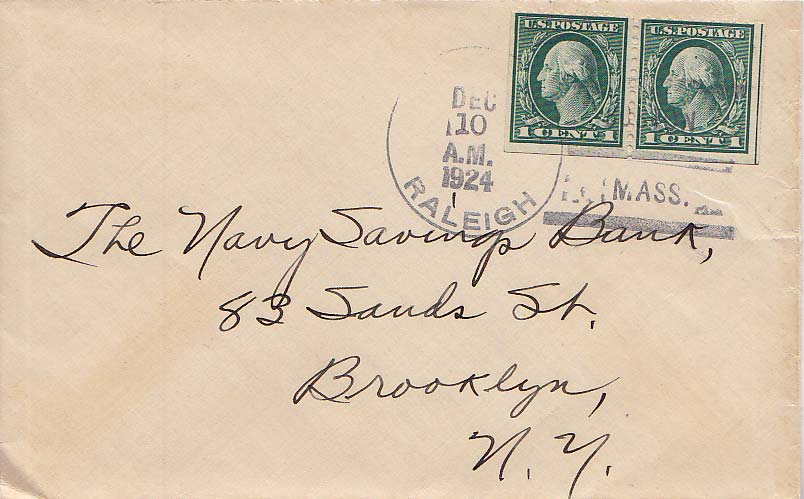 U.S. POSTAGE U.S. POSTAGE
1 CENT 1 1 CENT 1
DEC
10
A.M.
1924
RALEIGH
MASS.
The Navy Savings Bank,
83 Sands St.
Brooklyn,
N. Y.